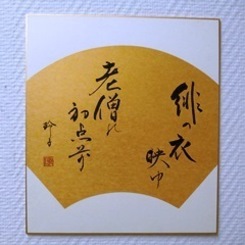 緋の衣
映ゆ
老僧の
初点前